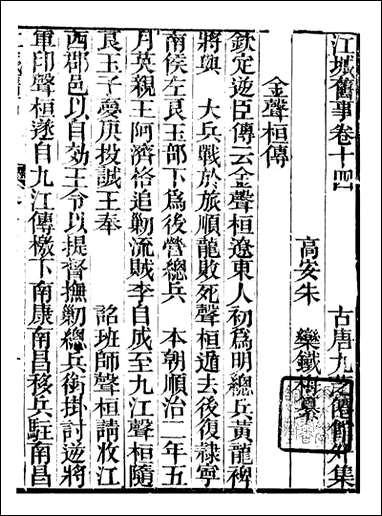 江城舊事卷十四
古唐九芝僊館 集
高安朱 欒鐵梅纂
金聲桓傳
欽定逆臣傳云金聲桓遼東人初爲明總兵黃龍裨
將與 大兵戰於旅順龍敗死聲桓遁去後復隸寧
南侯左良玉部下爲後營總兵 本朝順治二年五
月英親王阿濟格追勦流賊李自成至九江聲桓隨
良玉子夢庚投誠王奉 詔班師聲桓請收江
西郡邑以自効王令以提督撫勦總兵銜掛討逆將
軍印聲桓遂自九江傳檄下南康南昌移兵駐南昌